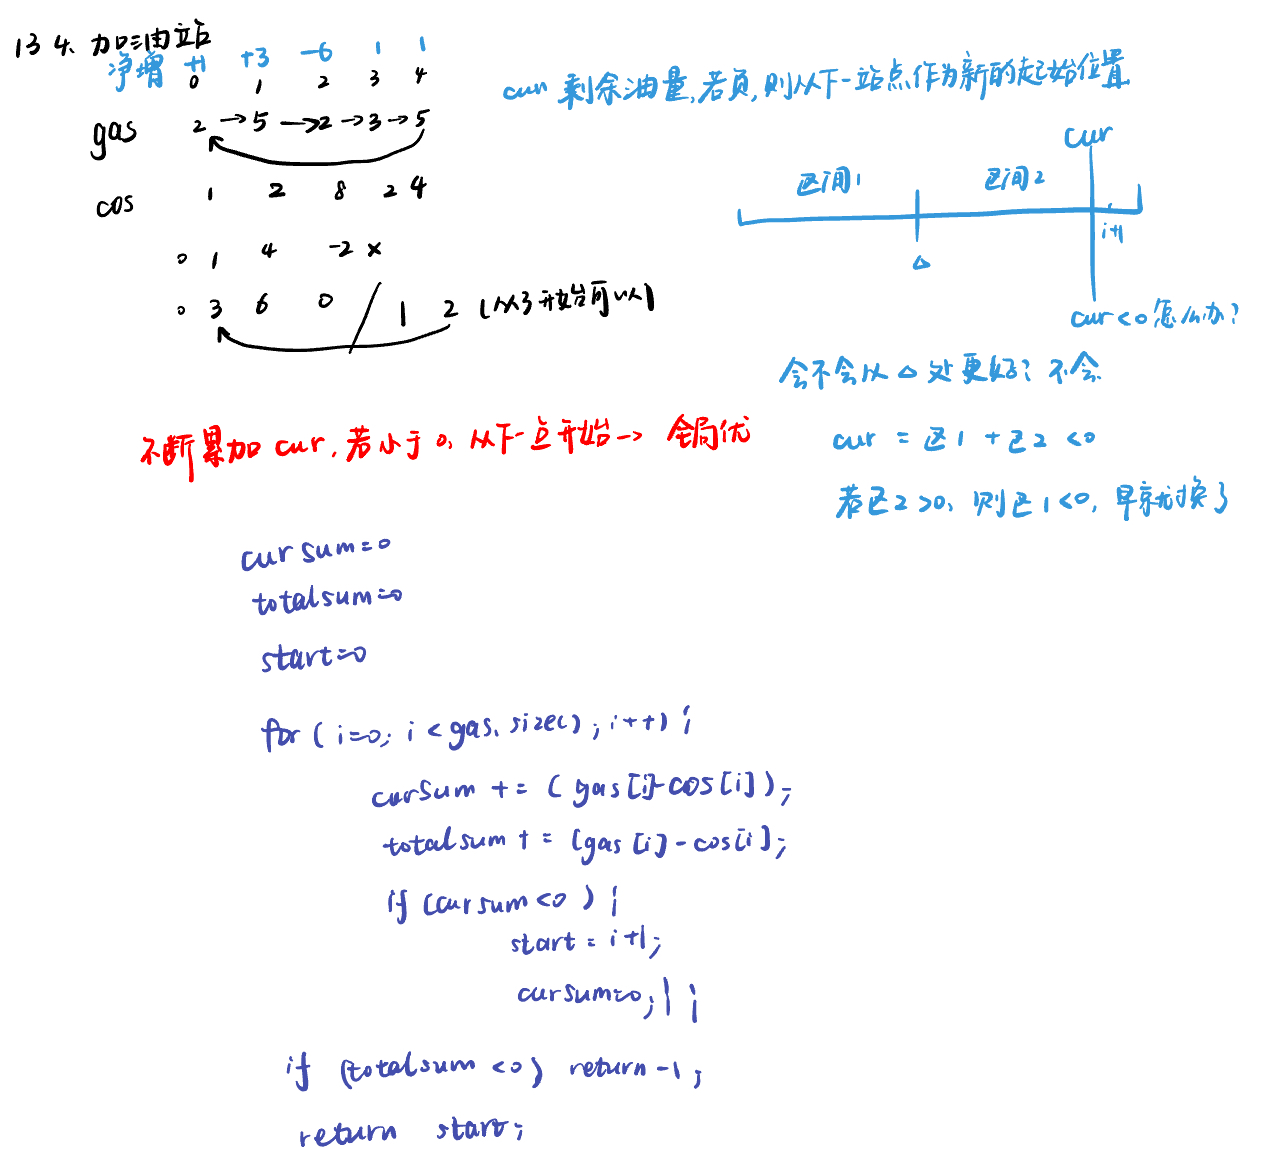 134. 加油站
净增 +1 +3 -6 1 1
0 1 2 3 4
gas 2 → 5 → 2 → 3 → 5
cos 1 2 8 2 4
0 1 4 -2 ×
0 3 6 0 / 1 2 (从3开始可以)
cur 剩余油量,若负,则从下一站点作为新的起始位置
cur
区间1 区间2
i+1
△
cur<0怎么办?
会不会从△处更好? 不会
cur = 区1+区2 <0
若区2>0, 则区1<0, 早就换了
不断累加cur,若小于0,从下一点开始→ 全局优
cursum=0
totalsum=0
start=0
for (i=0; i<gas.size(); i++) {
curSum += (gas[i]-cos[i]);
totalsum += (gas[i]-cos[i];
if (cursum<0) {
start = i+1;
cursum=0; } }
if (totalsum <0) return -1;
return start;